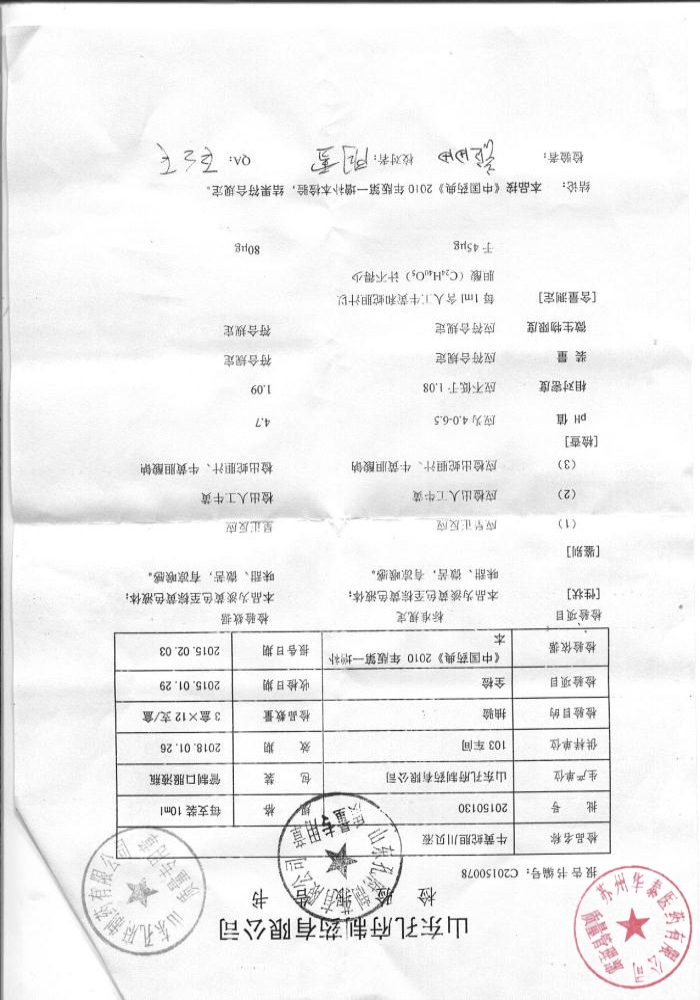 山东孔府制药有限公司
检验报告书
报告书编号：C20150078
检品名称 牛黄蛇胆川贝液
批 号 20150130 规 格 每支装 10ml
生产单位 山东孔府制药有限公司 包 装 管制口服液瓶
供样单位 103 车间 效 期 2018.01.26
检验目的 抽验 检品数量 3 盒×12 支/盒
检验项目 全检 收检日期 2015.01.29
检验依据 《中国药典》2010 年版第一增补本 报告日期 2015.02.03
检验项目 标准规定 检验数据
[性状] 本品为淡黄色至棕黄色液体； 本品为淡黄色至棕黄色液体；
味甜、微苦，有凉喉感。 味甜、微苦，有凉喉感。
[鉴别]
（1） 应呈正反应 呈正反应
（2） 应检出人工牛黄 检出人工牛黄
（3） 应检出蛇胆汁、牛黄胆酸钠 检出蛇胆汁、牛黄胆酸钠
[检查]
pH 值 应为 4.0-6.5 4.7
相对密度 应不低于 1.08 1.09
装 量 应符合规定 符合规定
微生物限度 应符合规定 符合规定
[含量测定] 每 1ml 含人工牛黄和蛇胆汁以
胆酸（C24H40O5）计不得少
于 45μg 80μg
结论： 本品按《中国药典》2010 年版第一增补本检验，结果符合规定。
检验者： 校对者： QA：
山东孔府制药有限公司
质量专用章
山东孔府制药有限公司
苏州华泰医药有限公司
质量管理部